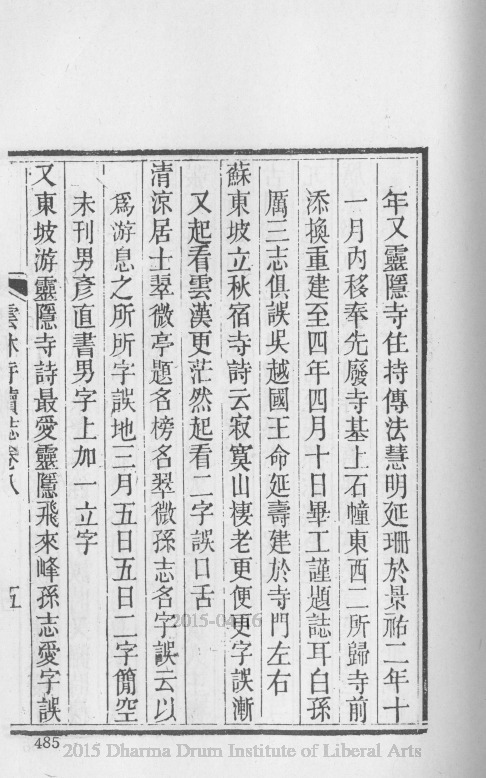 年又靈隱寺住持傳法慧明延珊於景祐二年十
一月內移奉先廢寺基上石幢東西二所歸寺前
添換重建至四年四月十日畢工謹題誌耳白孫
厲三志俱誤吴越國王命延壽建於寺門左右
蘇東坡立秋宿寺詩云寂寞山棲老更便更字誤漸
又起看雲漢更茫然起看二字誤口舌
清涼居士翠微亭題名榜名翠微孫志名字誤云以
爲游息之所所字誤地三月五日五日二字簡空
未刊男彥直書男字上加一立字
又東坡游靈隱寺詩最愛靈隱飛來峰孫志愛字誤
雲林寺續志卷八 五
485
2015 Dharma Drum Institute of Liberal Arts